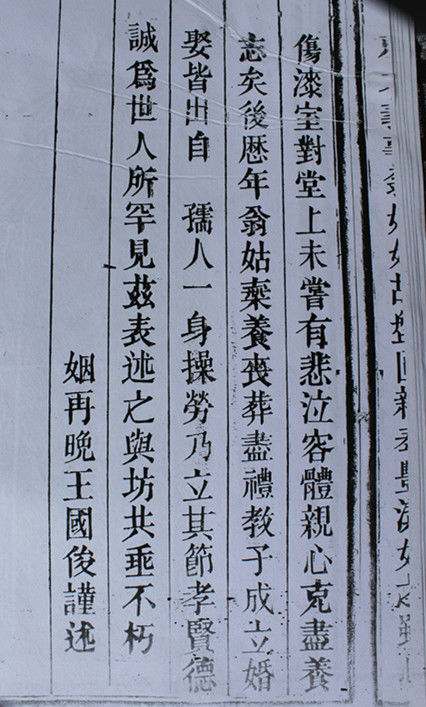 傷漆室對堂上未嘗有悲泣容體親心克盡養
志矣後歷年翁姑棄養喪葬盡禮教子成立婚
娶皆出自 孺人一身操勞乃立其節孝賢德
誠爲世人所罕見茲表述之與坊共垂不朽
姻再晚王國俊謹述